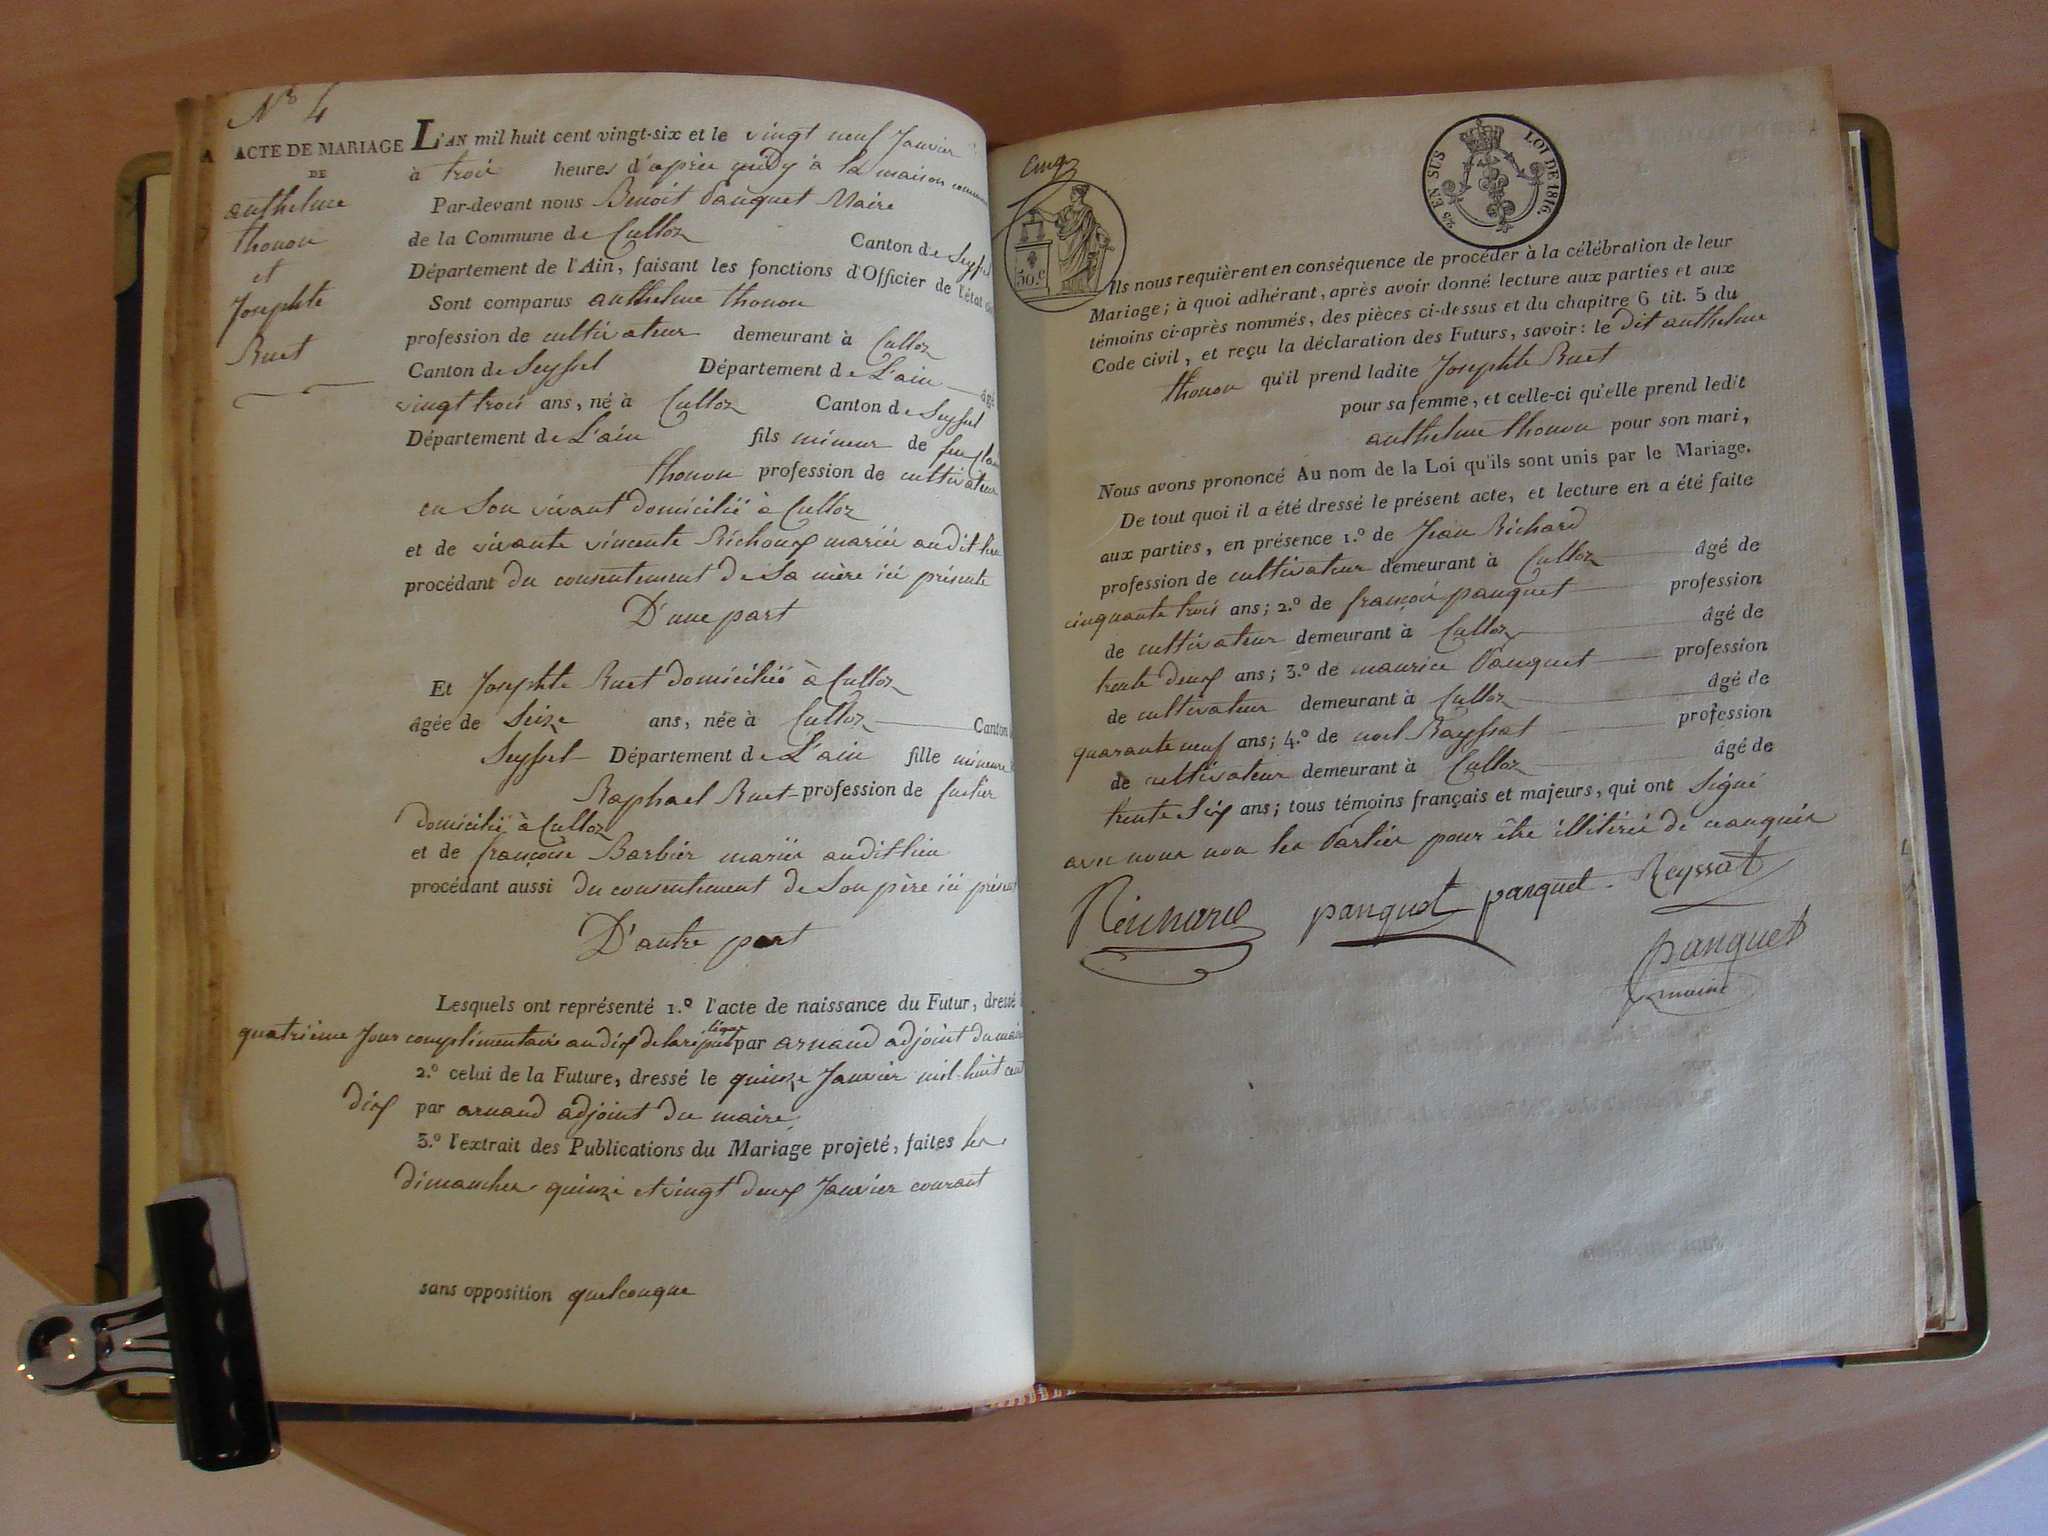 N° 4
ACTE DE MARIAGE
DE
anthelme
thonon
et
Josephte
Ruet
L'AN mil huit cent vingt-six et le vingt neuf Janvier
à trois heures d'après midy à la maison commune
Par-devant nous Benoit Pauquet Maire
de la Commune de Culloz Canton de Seyssel
Département de l'Ain, faisant les fonctions d'Officier de l'état
Sont comparus anthelme thonon
profession de cultivateur demeurant à Culloz
Canton de Seyssel Département de L'ain âgé
vingt trois ans, né à Culloz Canton de Seyssel
Département de L'ain fils mineur de feu
thonon profession de cultivateur
en Son vivant domicilié à Culloz
et de vivante vincente Richoux mariés audit lieu
procédant du consentement de Sa mère ici présente
D'une part
Et Josephte Ruet domiciliée à Culloz
âgée de Seize ans, née à Culloz Canton
Seyssel Département de L'ain fille mineure
Raphael Ruet profession de fustier
domicilié à Culloz
et de françoise Barbier mariés audit lieu
procédant aussi du consentement de Son père ici présent
D'autre part
Lesquels ont représenté 1.° l'acte de naissance du Futur, dressé
quatrième Jour complimentaire an dix de la république par arnaud adjoint du maire
2.° celui de la Future, dressé le quinze Janvier mil huit cent
dix par arnaud adjoint du maire
3.° l'extrait des Publications du Mariage projeté, faites les
dimanches quinze et vingt deux Janvier courant
sans opposition quelconque
cinq
50 c
25 EN SUS
LOI DE 1816.
Ils nous requièrent en conséquence de procéder à la célébration de leur
Mariage; à quoi adhérant, après avoir donné lecture aux parties et aux
témoins ci-après nommés, des pièces ci-dessus et du chapitre 6 tit. 5 du
Code civil, et reçu la déclaration des Futurs, savoir: le dit anthelme
thonon qu'il prend ladite Josephte Ruet
pour sa femme, et celle-ci qu'elle prend ledit
anthelme thonon pour son mari,
Nous avons prononcé Au nom de la Loi qu'ils sont unis par le Mariage.
De tout quoi il a été dressé le présent acte, et lecture en a été faite
aux parties, en présence 1.° de Jean Richard
profession de cultivateur demeurant à Culloz âgé de
cinquante trois ans; 2.° de françois pauquet profession
de cultivateur demeurant à Culloz âgé de
trente deux ans; 3.° de maurice Pauquet profession
de cultivateur demeurant à Culloz âgé de
quarante neuf ans; 4.° de noel Rayssat profession
de cultivateur demeurant à Culloz âgé de
trente Six ans; tous témoins français et majeurs, qui ont Signé
avec nous non les Parties pour être illitérés de ce enquis
Richard pauquet pauquet Reyssat
pauquet
maire